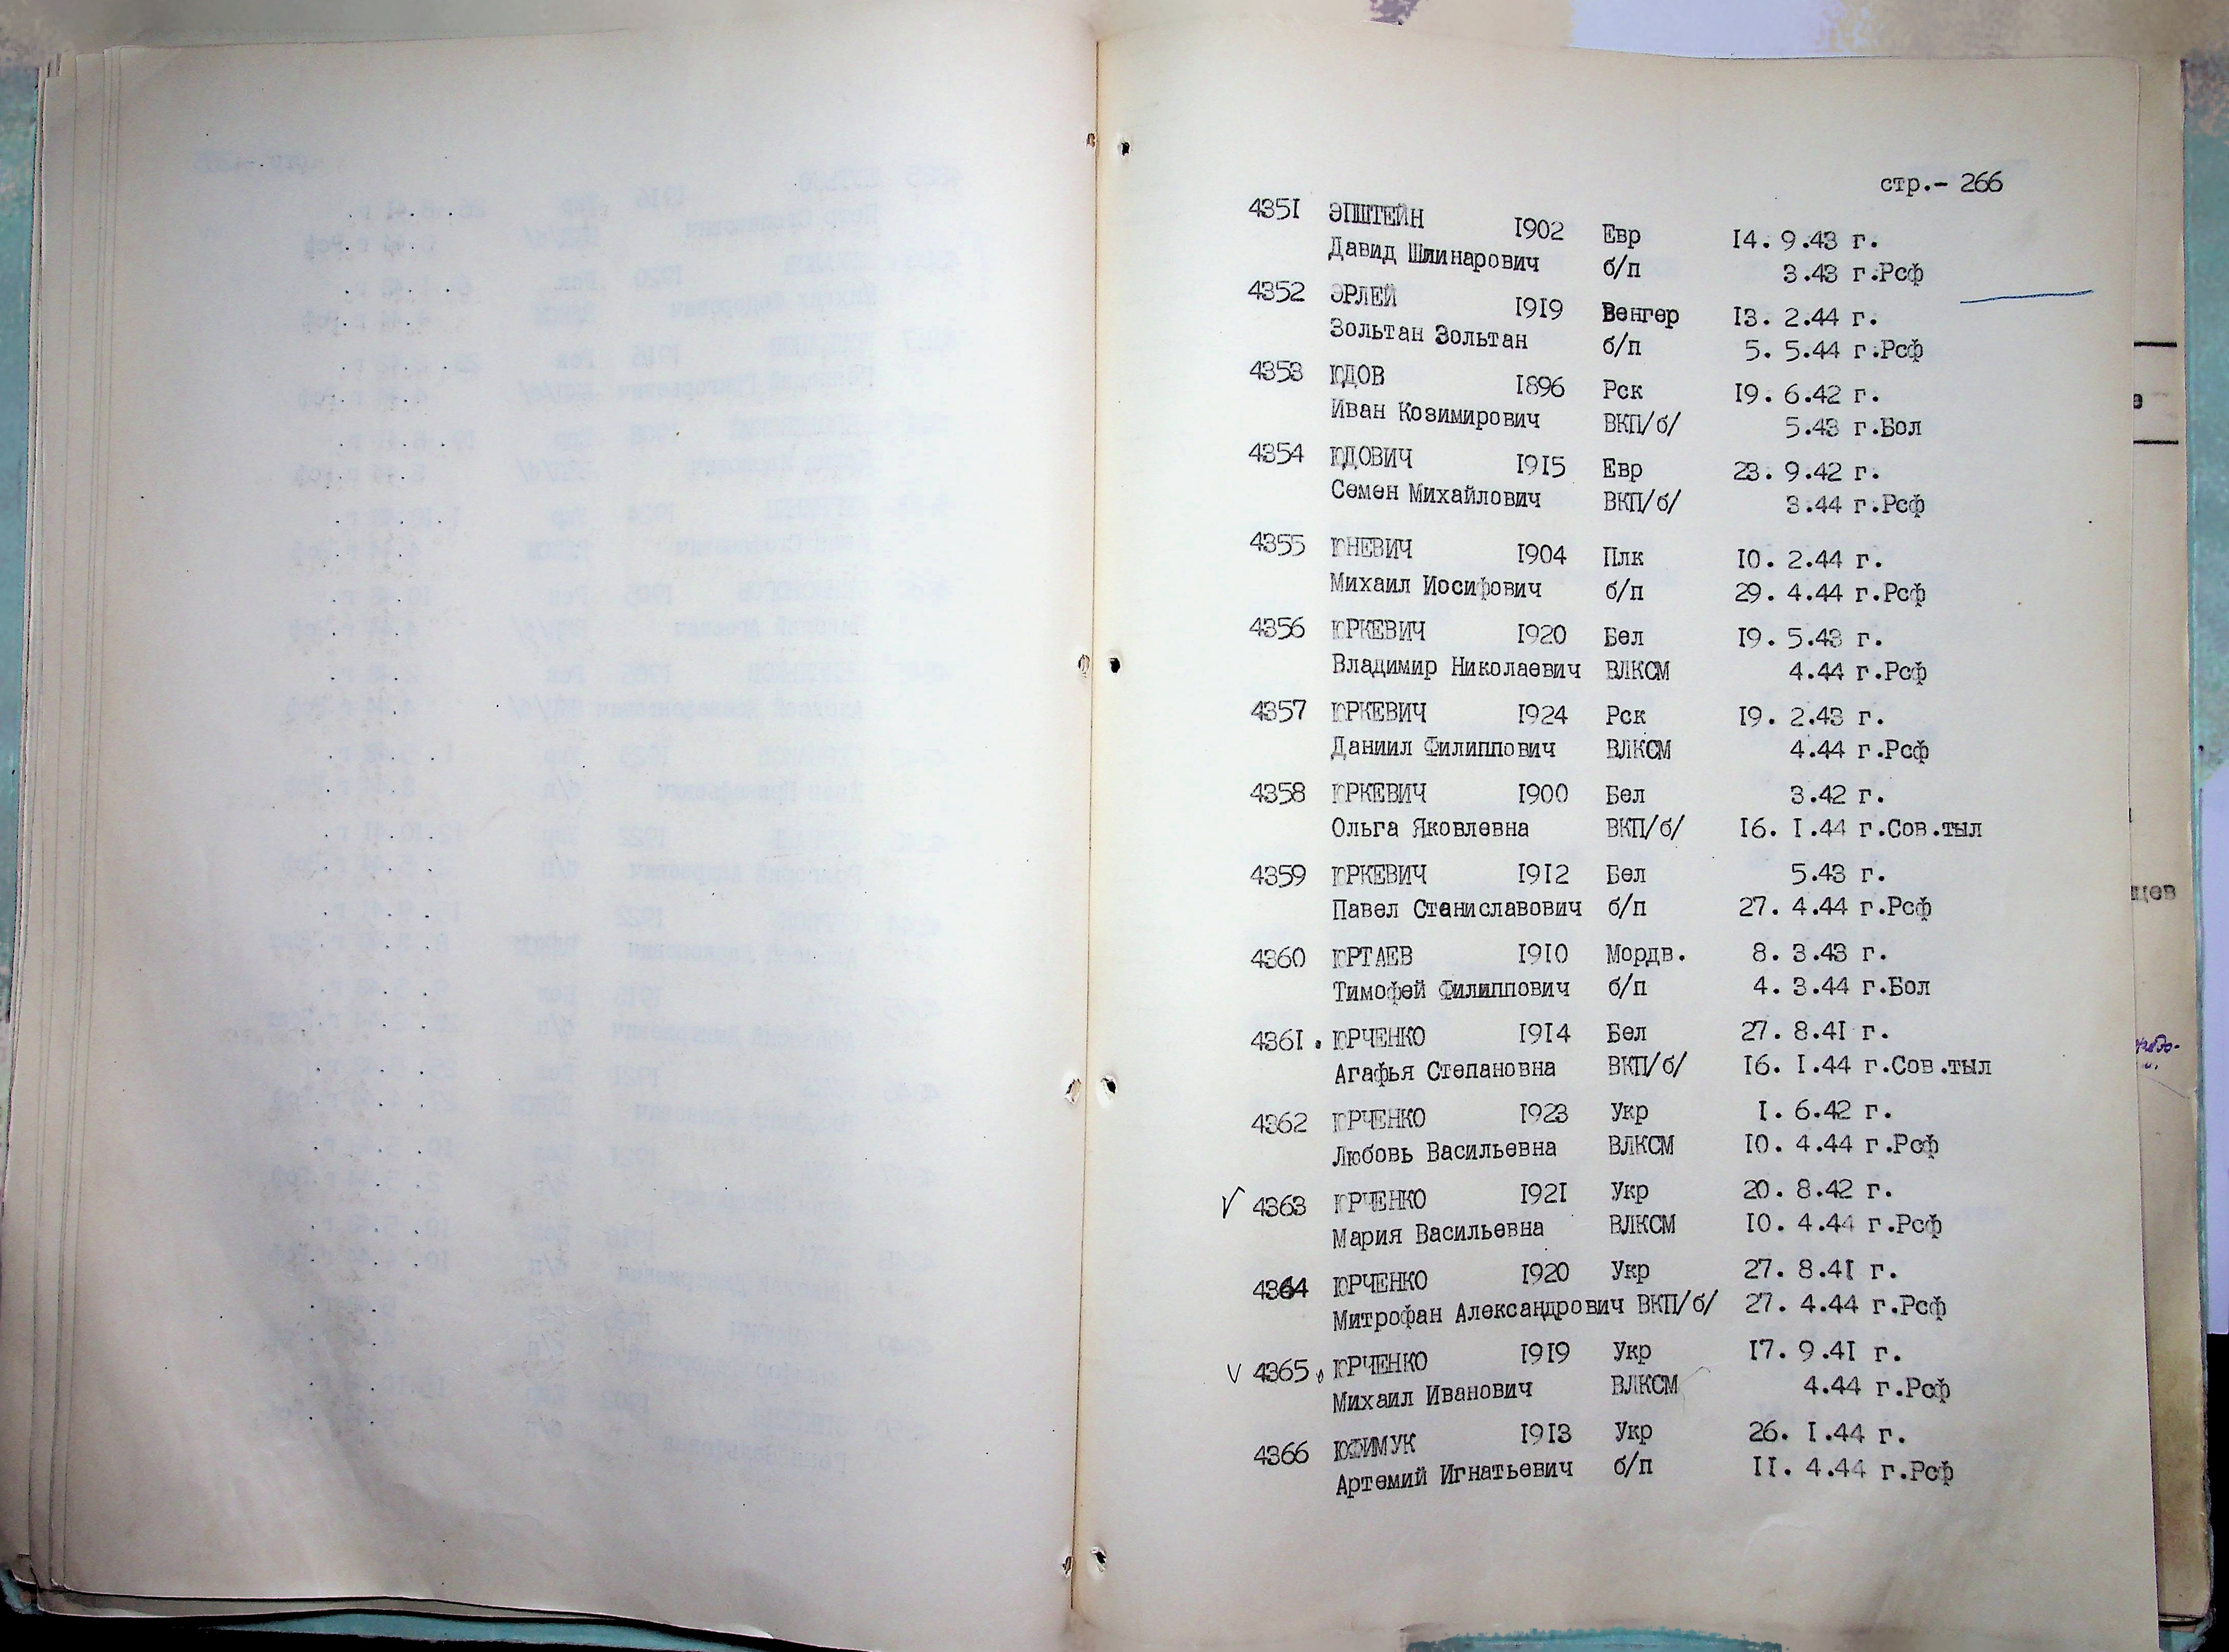 стр.- 266
4351 ЭПШТЕЙН 1902 Евр 14. 9.43 г.
Давид Шлинарович б/п 3.43 г.Рсф
4352 ЭРЛЕЙ 1919 Венгер 13. 2.44 г.
Зольтан Зольтан б/п 5. 5.44 г.Рсф
4353 ЮДОВ 1896 Рск 19. 6.42 г.
Иван Козимирович ВКП/б/ 5.43 г.Бол
4354 ЮДОВИЧ 1915 Евр 23. 9.42 г.
Семен Михайлович ВКП/б/ 3.44 г.Рсф
4355 ЮНЕВИЧ 1904 Плк 10. 2.44 г.
Михаил Иосифович б/п 29. 4.44 г.Рсф
4356 ЮРКЕВИЧ 1920 Бел 19. 5.43 г.
Владимир Николаевич ВЛКСМ 4.44 г.Рсф
4357 ЮРКЕВИЧ 1924 Рск 19. 2.43 г.
Даниил Филиппович ВЛКСМ 4.44 г.Рсф
4358 ЮРКЕВИЧ 1900 Бел 3.42 г.
Ольга Яковлевна ВКП/б/ 16. 1.44 г.Сов.тыл
4359 ЮРКЕВИЧ 1912 Бел 5.43 г.
Павел Станиславович б/п 27. 4.44 г.Рсф
4360 ЮРТАЕВ 1910 Мордв. 8. 3.43 г.
Тимофей Филиппович б/п 4. 3.44 г.Бол
4361. ЮРЧЕНКО 1914 Бел 27. 8.41 г.
Агафья Степановна ВКП/б/ 16. 1.44 г.Сов.тыл
4362 ЮРЧЕНКО 1923 Укр 1. 6.42 г.
Любовь Васильевна ВЛКСМ 10. 4.44 г.Рсф
√ 4363 ЮРЧЕНКО 1921 Укр 20. 8.42 г.
Мария Васильевна ВЛКСМ 10. 4.44 г.Рсф
4364 ЮРЧЕНКО 1920 Укр 27. 8.41 г.
Митрофан Александрович ВКП/б/ 27. 4.44 г.Рсф
√ 4365. ЮРЧЕНКО 1919 Укр 17. 9.41 г.
Михаил Иванович ВЛКСМ 4.44 г.Рсф
4366 ЮФИМУК 1913 Укр 26. 1.44 г.
Артемий Игнатьевич б/п 11. 4.44 г.Рсф